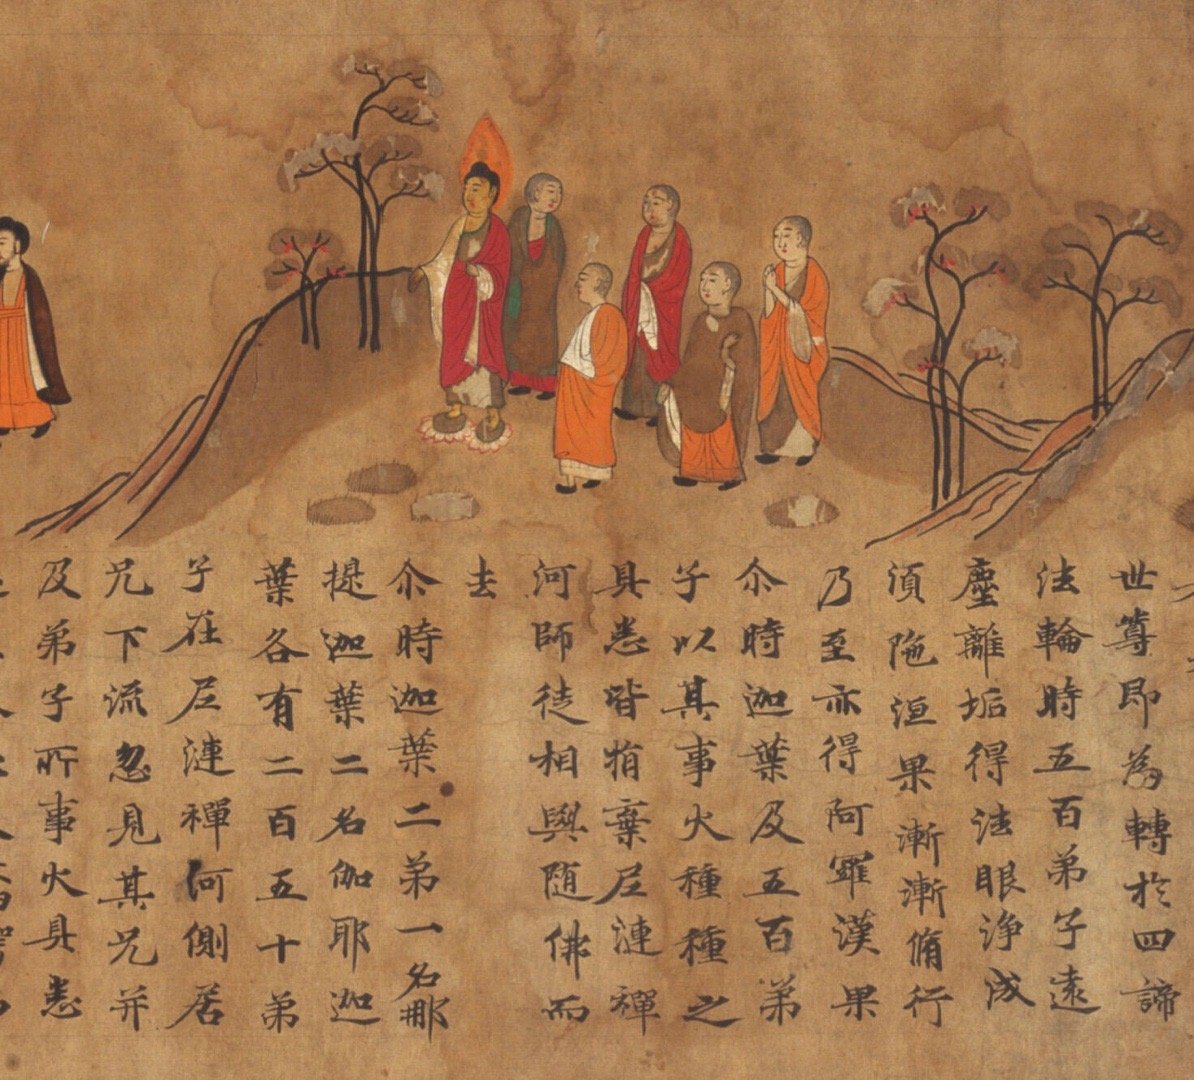 世尊即為轉於四諦
法輪時五百弟子遠
塵離垢得法眼淨成
湏陁洹果漸漸脩行
乃至亦得阿羅漢果
尒時迦葉及五百弟
子以其事火種種之
具悉皆捐棄尼連禪
河師徒相與随佛而
去
尒時迦葉二弟一名那
提迦葉二名伽耶迦
葉各有二百五十弟
子在尼連禪河側居
兄下流忽見其兄并
及弟子所事火具悉